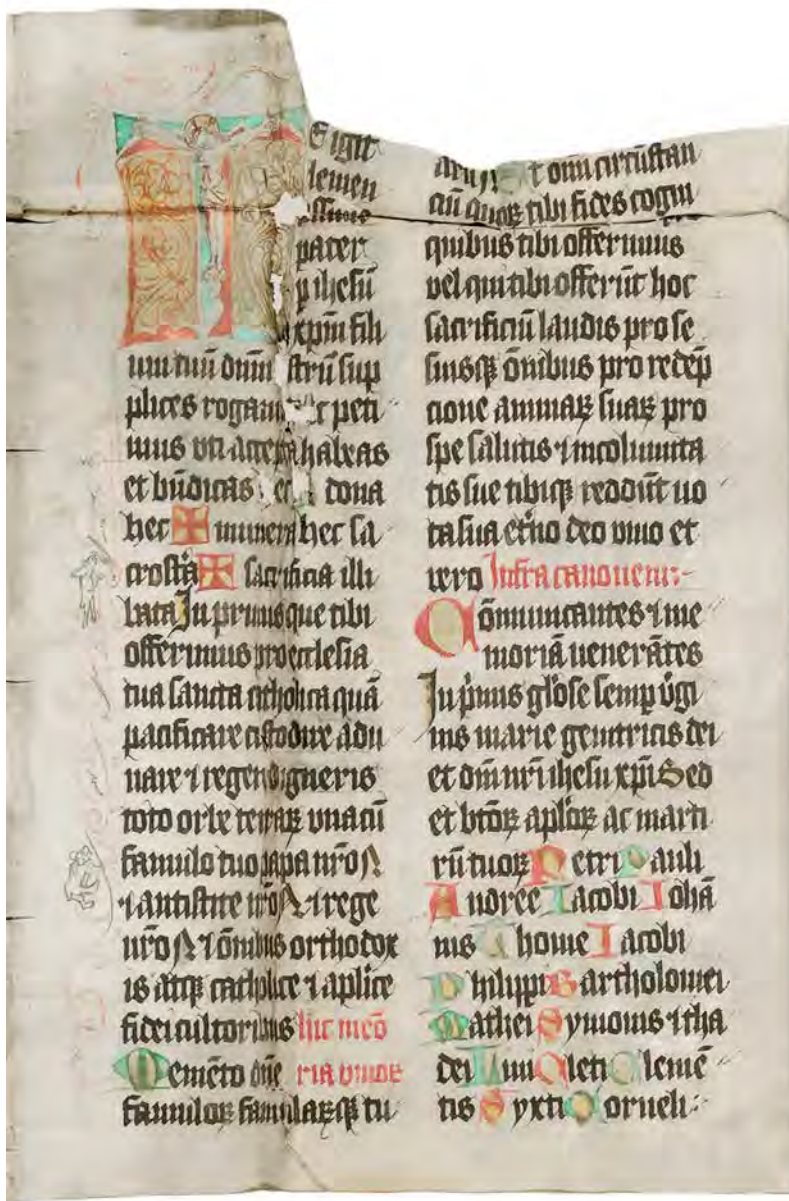 TE igit
lemen
ssime
pater
p ihesū
xpm̄ fili
um tuū dnm̄ strū sup
plices rogam et peti
mus vti accepta habeas
et bn̄dicas dona
hec ✠ munera hec sa
✠ sacrificia illi
bata In primis que tibi
offerimus pro ecclesia
tua sancta catholica quā
pacificare custodire adu
nare ⁊ regere digneris
toto orbe terraꝝ vna cū
famulo tuo papa nr̄o N
⁊ antistite nr̄o N ⁊ rege
nr̄o N ⁊ ōnibus orthodox
is atqꝫ catholice ⁊ aplice
fidei cultoribus hic meō
Memēto dn̄e ria viuoꝝ
famuloꝝ famulaꝝqꝫ tu
arum Et omī circūstan
ciū quoꝝ tibi fides cogni
quibus tibi offerimus
vel qui tibi offerūt hoc
sacrificiū laudis pro se
suisqꝫ ōnibus pro redēp
cione animaꝝ suaꝝ pro
spe salutis ⁊ incolumita
tis sue tibiqꝫ reddūt uo
ta sua etn̄o deo viuo et
vero Infra canonem:-
Cōmunicantes ⁊ me
moriā venerātes
In p̄mis glōse semp v̄gi
nis marie genitricis dei
et dn̄i nr̄i ihesu xpī Sed
et btōꝝ aplōꝝ ac marti
rū tuoꝝ Petri Pauli
Andree Iacobi Iohā
nis Thome Iacobi
Philippi Bartholomei
Mathei Symonis ⁊ tha
dei Lini Cleti Clemē
tis Syxti Corneli: